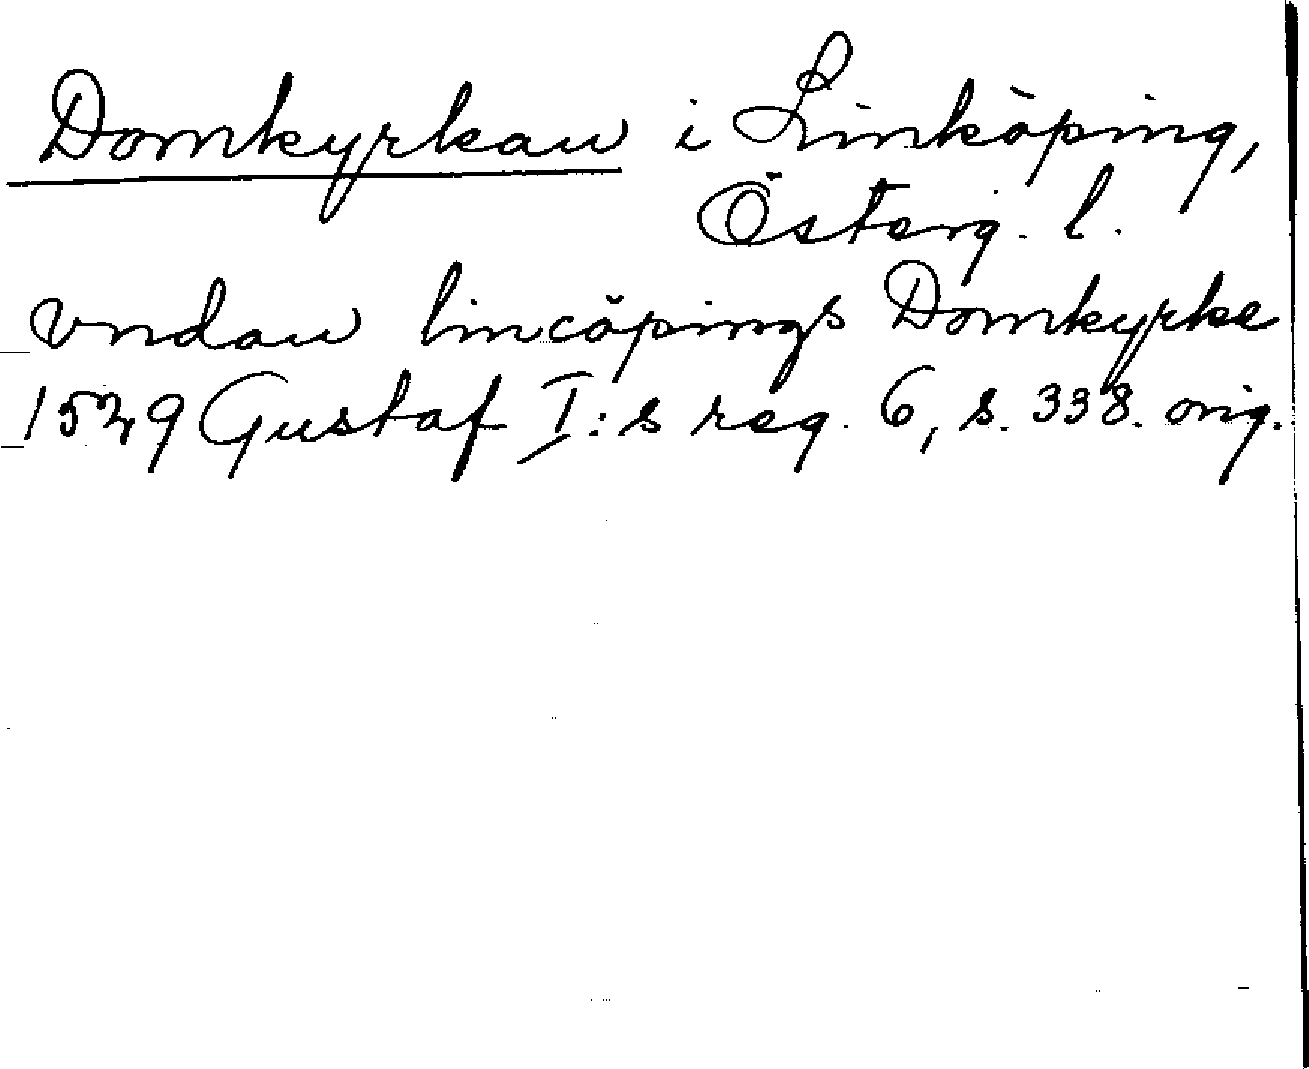 Domkyrkan i Linköping,
Österg. l.
vndan lincöpings Domkyrke
1529 Gustaf I:s reg. 6, s. 338. orig.